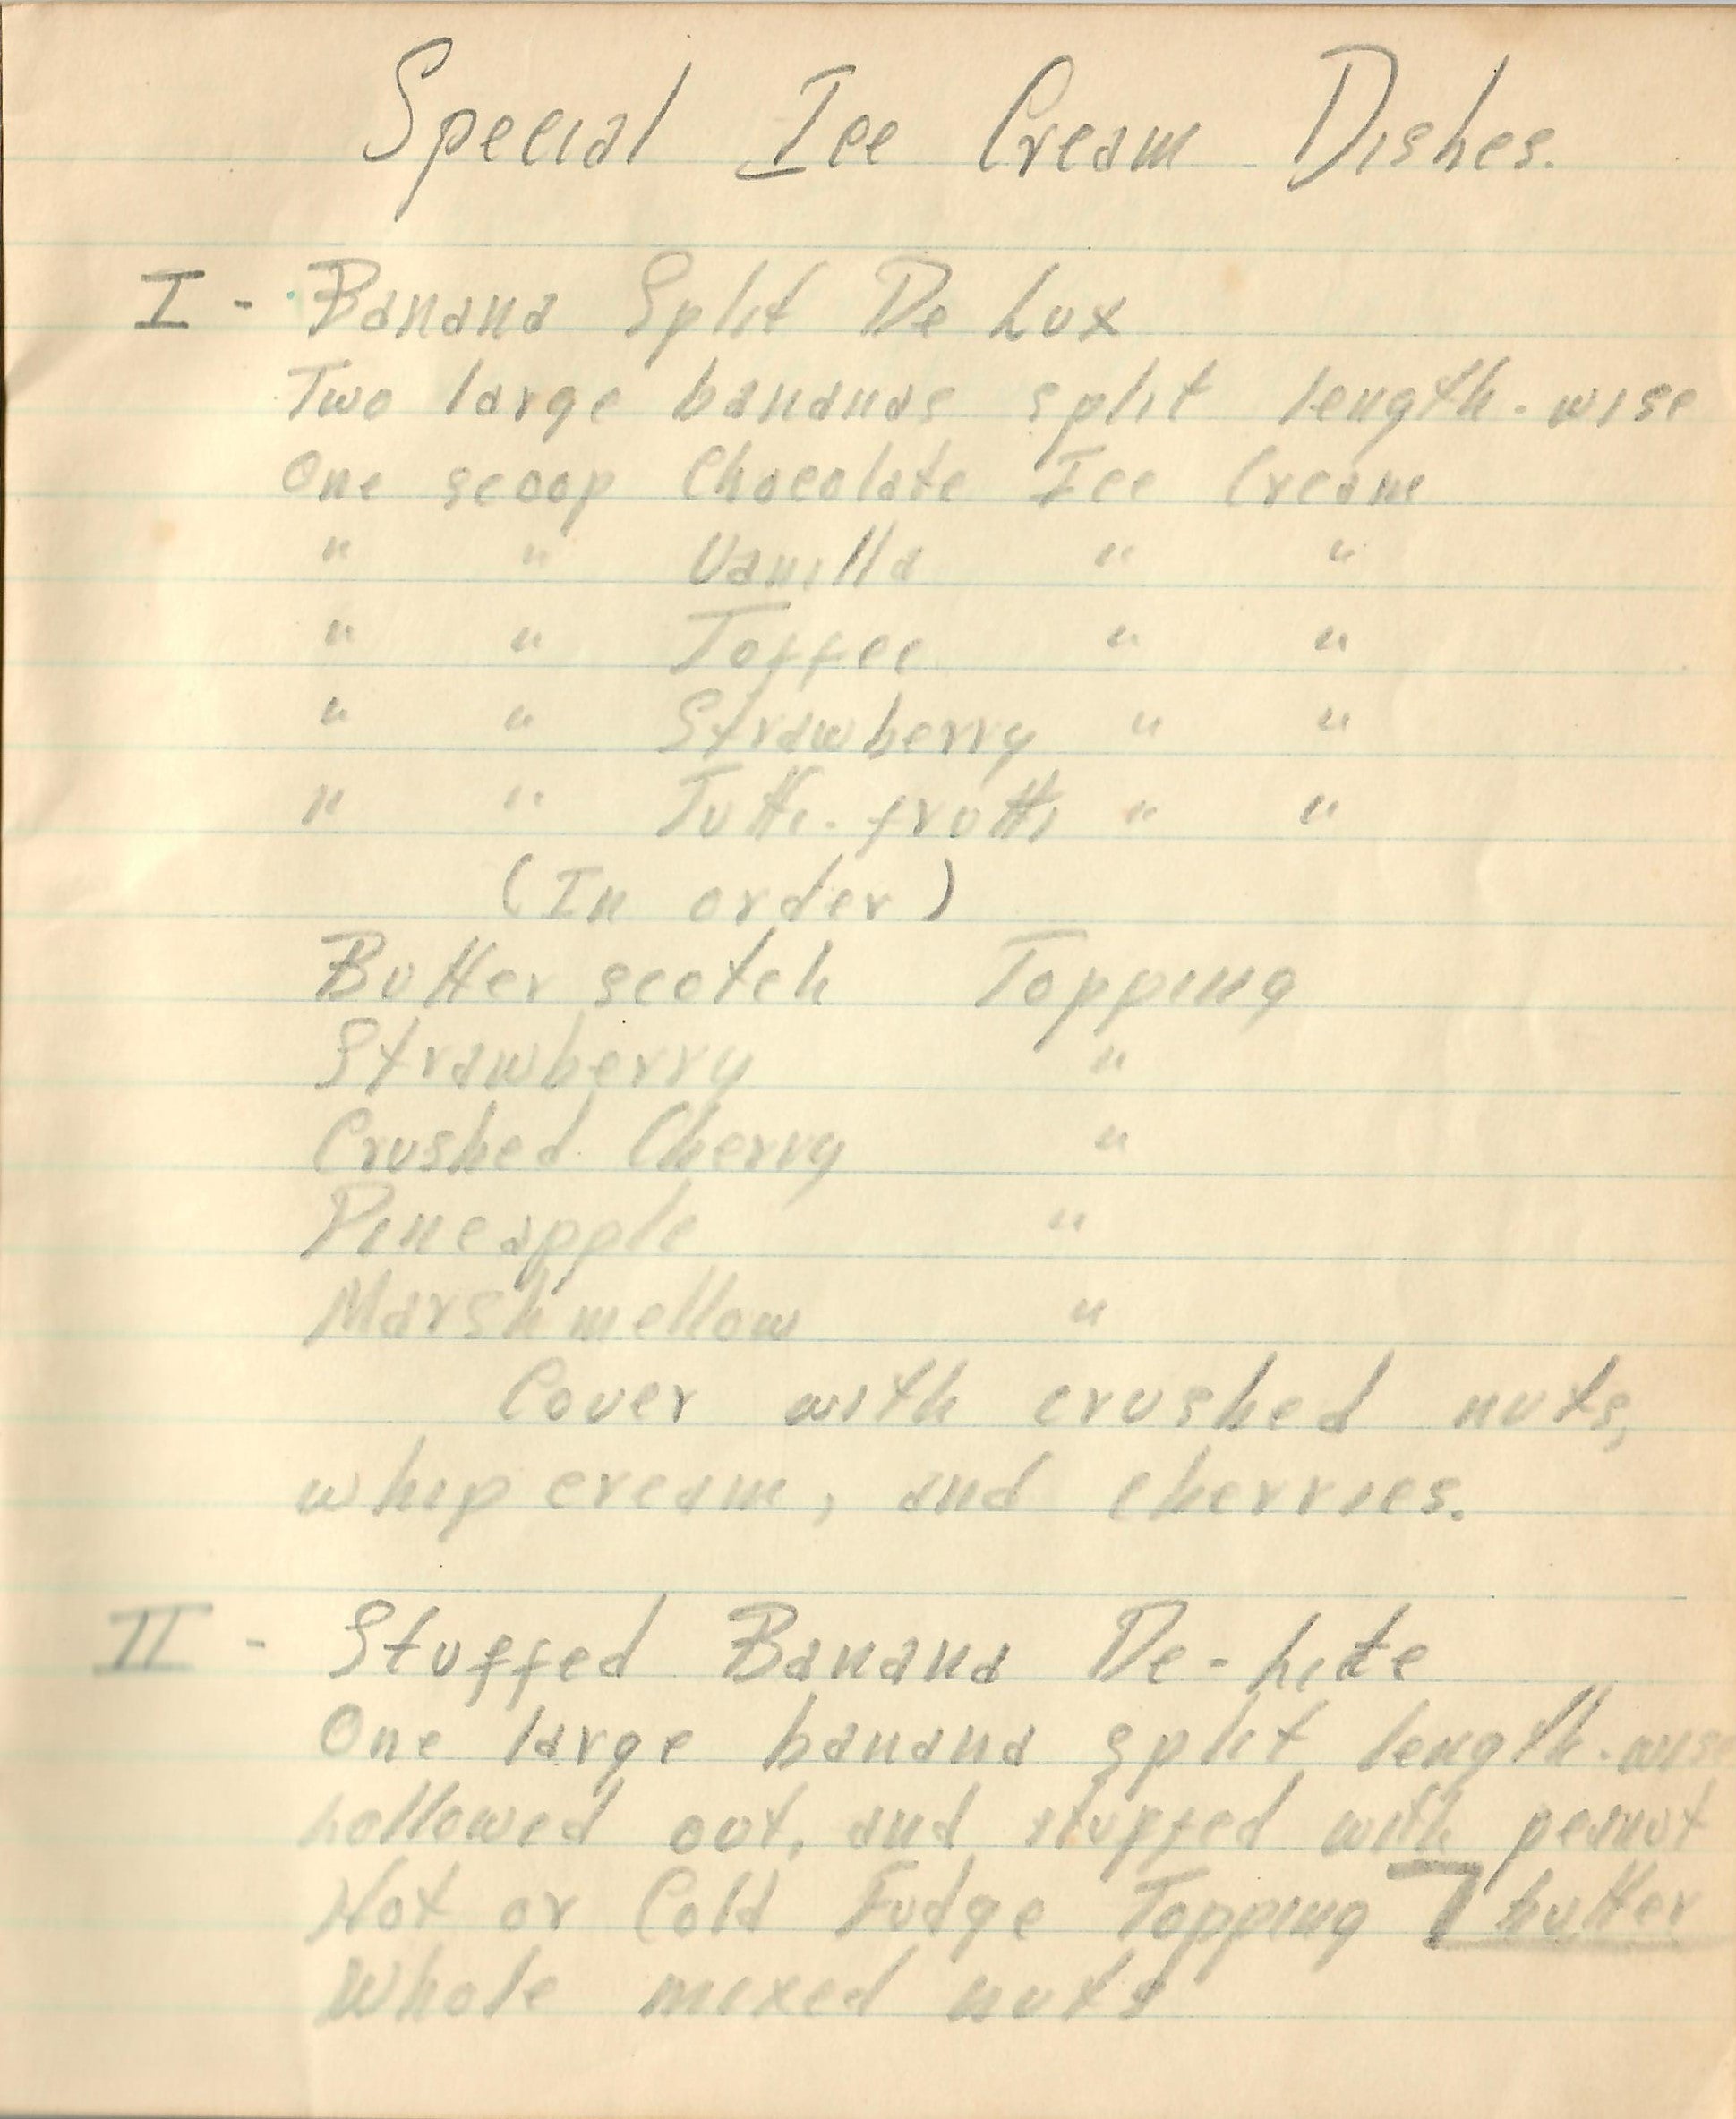 Special Ice Cream Dishes.
I - Banana Split De Lux
Two large bananas split length-wise
One scoop Chocolate Ice Cream
" " Vanilla " "
" " Toffee " "
" " Strawberry " "
" " Tutti-frutti " "
(In order)
Butter scotch Topping
Strawberry "
Crushed Cherry "
Pineapple "
Marshmellow "
Cover with crushed nuts,
whip cream, and cherries.
II - Stuffed Banana De-Lite
One large banana split length-wise
hollowed out, and stuffed with peanut
Hot or Cold Fudge Topping butter
Whole mixed nuts